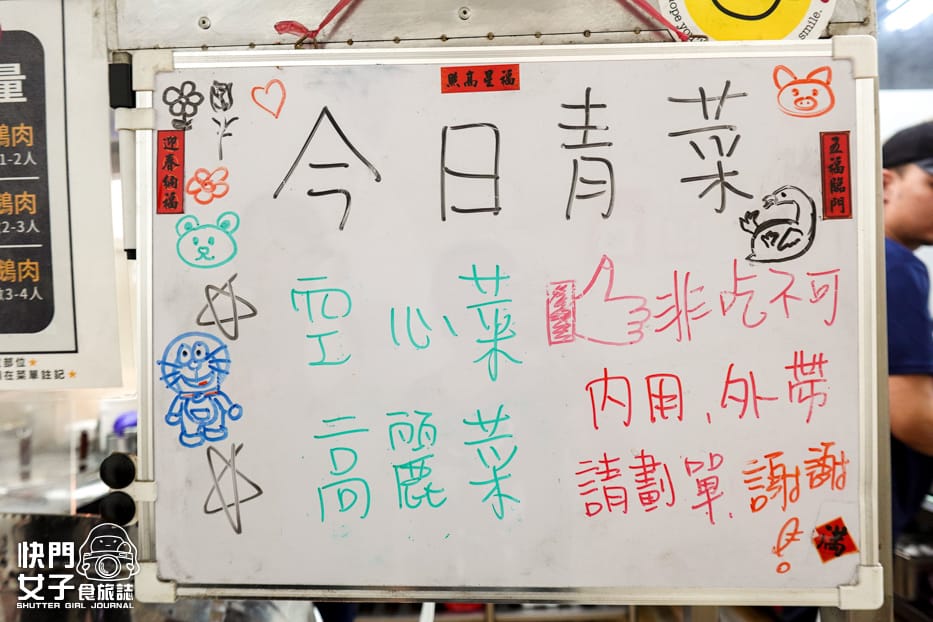 hope you
smile.
福星高照
迎春納福
五福臨門
今日青菜
空心菜
高麗菜
非吃不可
內用、外帶
請劃單, 謝謝
!
滿
量
鵝肉
1-2人
鵝肉
2-3人
鵝肉
3-4人
部位★
在菜單註記★
快門
女子食旅誌
SHUTTER GIRL JOURNAL